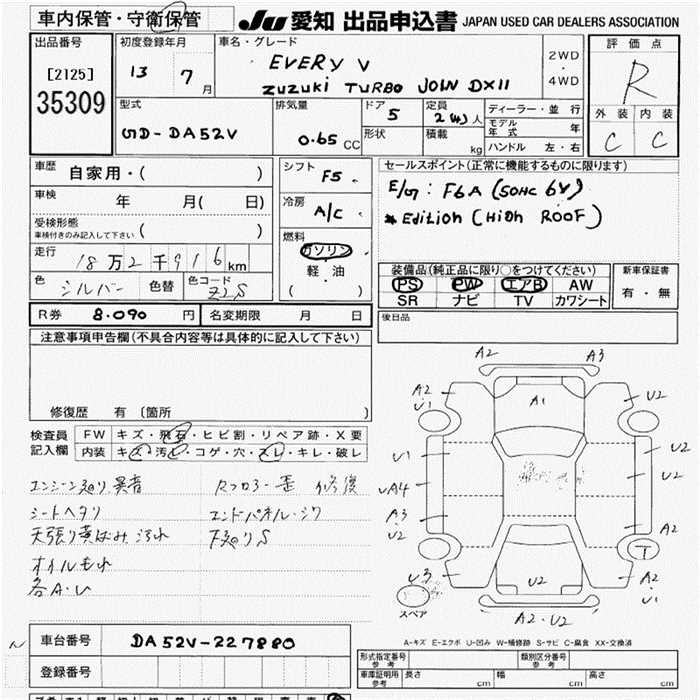 車内保管・守衛保管
JU 愛知 出品申込書 JAPAN USED CAR DEALERS ASSOCIATION
出品番号
[2125]
35309
初度登録年月
13 7月
車名・グレード
EVERY V
ZUZUKI TURBO JOIN DXII
2WD
4WD
評価点
R
外装 内装
C C
型式
GD-DA52V
排気量
0.65 CC
ドア
5
形状
定員
2(4)人
積載
kg
ディーラー・並行
モデル年式 年
ハンドル 左・右
車歴
自家用・( )
車検
年 月( 日)
受検形態
車検付きのみ記入して下さい ( )
走行
18万2千916km
色
シルバー
色替
色コード
Z2S
シフト
F5
冷房
A/C
燃料
ガソリン
軽・油
( )
セールスポイント(正常に機能するものに限ります)
E/G: F6A (SOHC 6V)
*Edition (HIGH ROOF)
装備品(純正品に限り○をつけてください)
PS PW エアB AW
SR ナビ TV カワシート
新車保証書
有・無
R券 8.090 円
名変期限 月 日
後日品
注意事項申告欄(不具合内容等は具体的に記入して下さい)
修復歴 有 (箇所 )
検査員記入欄
FW キズ・飛石・ヒビ割・リペア跡・X要
内装 キズ・汚レ・コゲ・穴・スレ・キレ・破レ
エンジン廻り異音
シートヘタリ
天張り黄ばみ汚れ
オイルもれ
各A・U
Rフロアー歪 修復
エンドパネル・シワ
下廻りS
A2 A3
A2 U1
A1
U2
U1
U2
UA4
U2
A3 U2
A2
U3
U2
T
A2 U1
スペア
A2・U2
A-キズ E-エクボ U-凹み W-補修跡 S-サビ C-腐食 XX-交換済
車台番号 DA52V-227880
登録番号
形式指定番号 参考
類別区分番号 参考
車庫証明用 参考
長さ cm 幅 cm 高さ cm